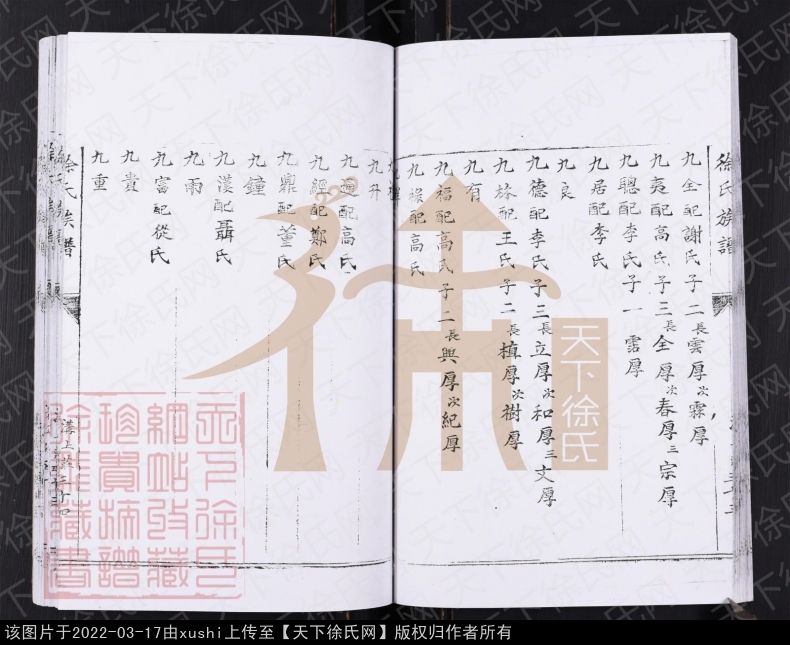 徐氏族譜
九全配謝氏子二長雲厚次霖厚
九夷配高氏子三長全厚次春厚三宗厚
九聰配李氏子一霑厚
九居配李氏
九良
九德配李氏子三長立厚次和厚三文厚
九族配王氏子二長植厚次樹厚
九有
九福配高氏子二長興厚次紀厚
九祿配高氏
九升
九通配高氏
九經配鄭氏
九鼎配董氏
九鐘
九漢配聶氏
九雨
九富配從氏
九貴
九重
徐氏族譜
天下徐氏
天下徐氏网
该图片于2022-03-17由xushi上传至【天下徐氏网】版权归作者所有